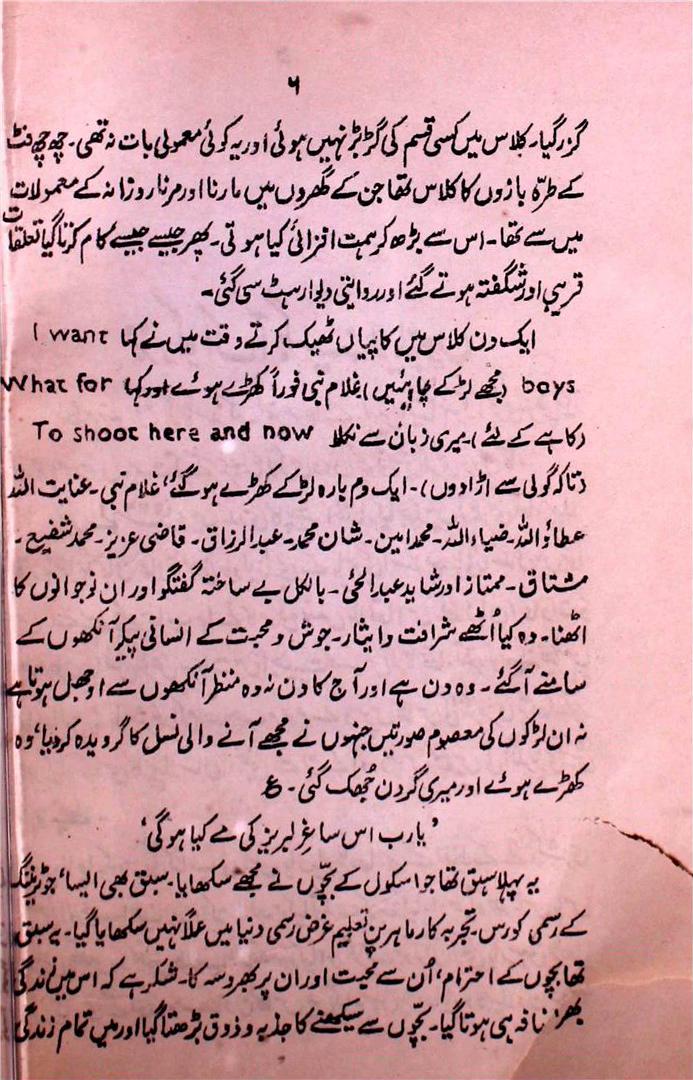 ۶
گزر گیا۔ کلاس میں کسی قسم کی گڑ بڑ نہیں ہوئی اور یہ کوئی معمولی بات نہ تھی۔ چھ چھ فٹ
کے طرّہ بازوں کا کلاس تھا جن کے گھروں میں مارنا اور مرنا روزانہ کے معمولات
میں سے تھا۔ اس سے بڑھ کر ہمت افزائی کیا ہوتی۔ پھر جیسے جیسے کام کرتا گیا تعلقات
قریبی اور شگفتہ ہوتے گئے اور روایتی دیوار ہٹ سی گئی۔
ایک دن کلاس میں کاپیاں ٹھیک کرتے وقت میں نے کہا I want
boys (مجھے لڑکے چاہئیں) غلام نبی فوراً کھڑے ہوئے اور کہا What for
(کاہے کے لئے)۔ میری زبان سے نکلا To shoot here and now
(تاکہ گولی سے اڑا دوں)۔ ایک دم بارہ لڑکے کھڑے ہو گئے، غلام نبی۔ عنایت اللہ
عطاء اللہ۔ ضیاء اللہ۔ محمد امین۔ شان محمد۔ عبدالرزاق۔ قاضی عزیز۔ محمد شفیع۔
مشتاق۔ ممتاز اور شاید عبدالحئی۔ بالکل بے ساختہ گفتگو اور ان نوجوانوں کا
اٹھنا۔ وہ کیا اُٹھے شرافت و ایثار۔ جوش و محبت کے انسانی پیکر آنکھوں کے
سامنے آ گئے۔ وہ دن ہے اور آج کا دن نہ وہ منظر آنکھوں سے اوجھل ہوتا ہے
نہ ان لڑکوں کی معصوم صورتیں جنہوں نے مجھے آنے والی نسل کا گرویدہ کر دیا، وہ
کھڑے ہوئے اور میری گردن جُھک گئی۔ ع
’یارب اس ساغرِ لبریز کی مے کیا ہو گی‘
یہ پہلا سبق تھا جو اسکول کے بچّوں نے مجھے سکھایا۔ سبق بھی ایسا، جو ٹریننگ
کے رسمی کورس۔ تجربہ کار ماہرینِ تعلیم غرض رسمی دنیا میں عملاً نہیں سکھایا گیا۔ یہ سبق
تھا بچوں کے احترام، اُن سے محبت اور ان پر بھروسہ کا۔ شکر ہے کہ اس میں زندگی
بھر اضافہ ہی ہوتا گیا۔ بچّوں سے سیکھنے کا جذبہ و ذوق بڑھتا گیا اور میں تمام زندگی